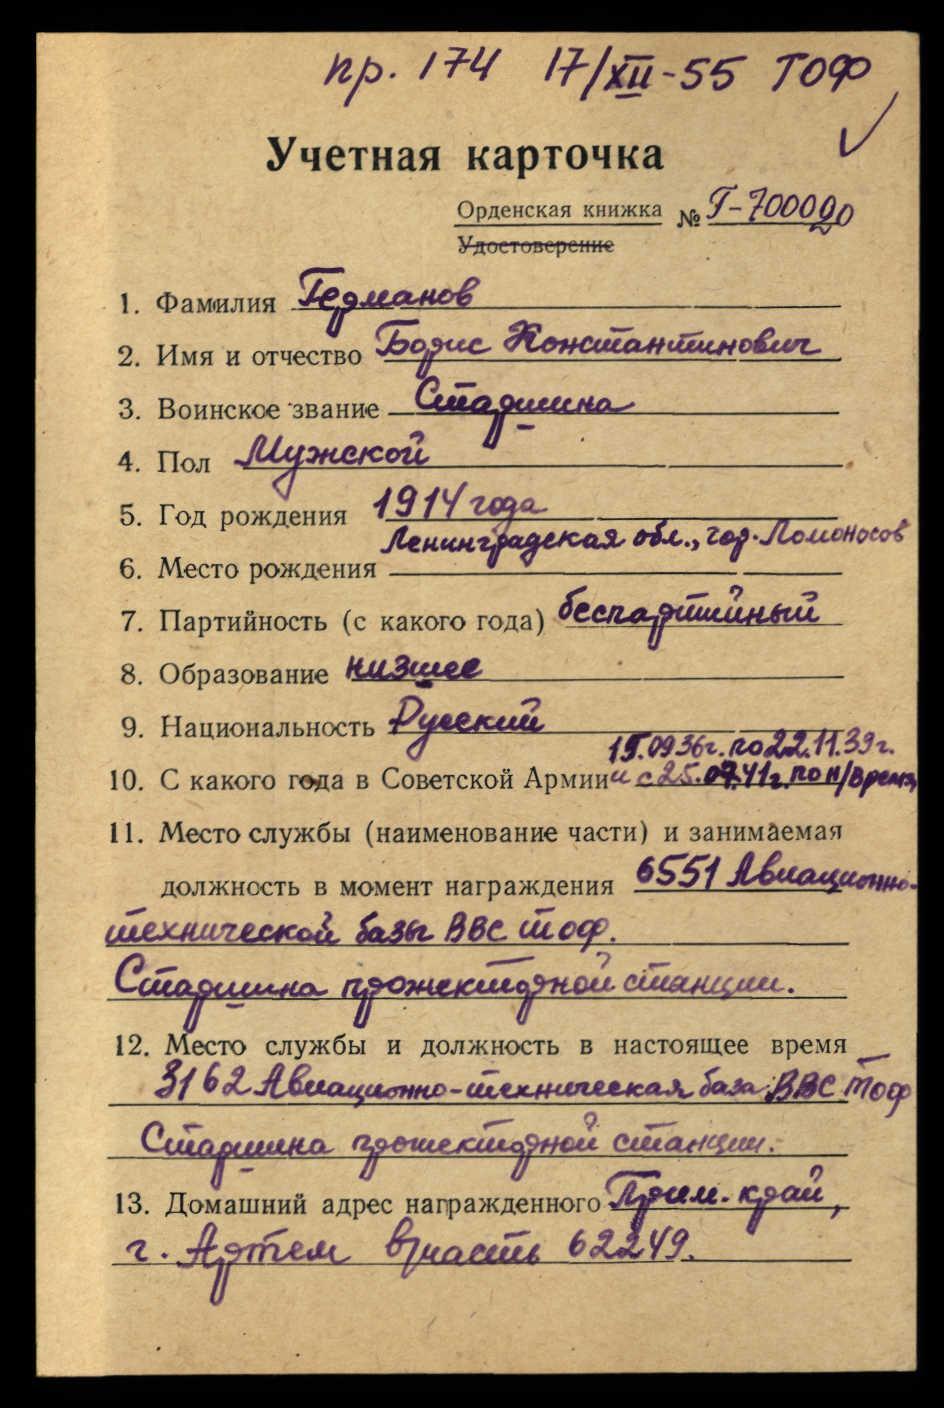 пр. 174 17/XII-55 ТОФ
Учетная карточка
Орденская книжка № Г-700090
Удостоверение
1. Фамилия Германов
2. Имя и отчество Борис Константинович
3. Воинское звание Старшина
4. Пол Мужской
5. Год рождения 1914 года
Ленинградская обл., гор. Ломоносов
6. Место рождения
7. Партийность (с какого года) беспартийный
8. Образование низшее
9. Национальность Русский
15.09.36г. по 22.11.39г.
10. С какого года в Советской Армии и с 25.07.41г. по н/время
11. Место службы (наименование части) и занимаемая
должность в момент награждения 6551 Авиационно-
технической базы ВВС ТОФ.
Старшина прожекторной станции.
12. Место службы и должность в настоящее время
3162 Авиационно-техническая база ВВС ТОФ
Старшина прожекторной станции.
13. Домашний адрес награжденного Прим. край,
г. Артем в/часть 62249.